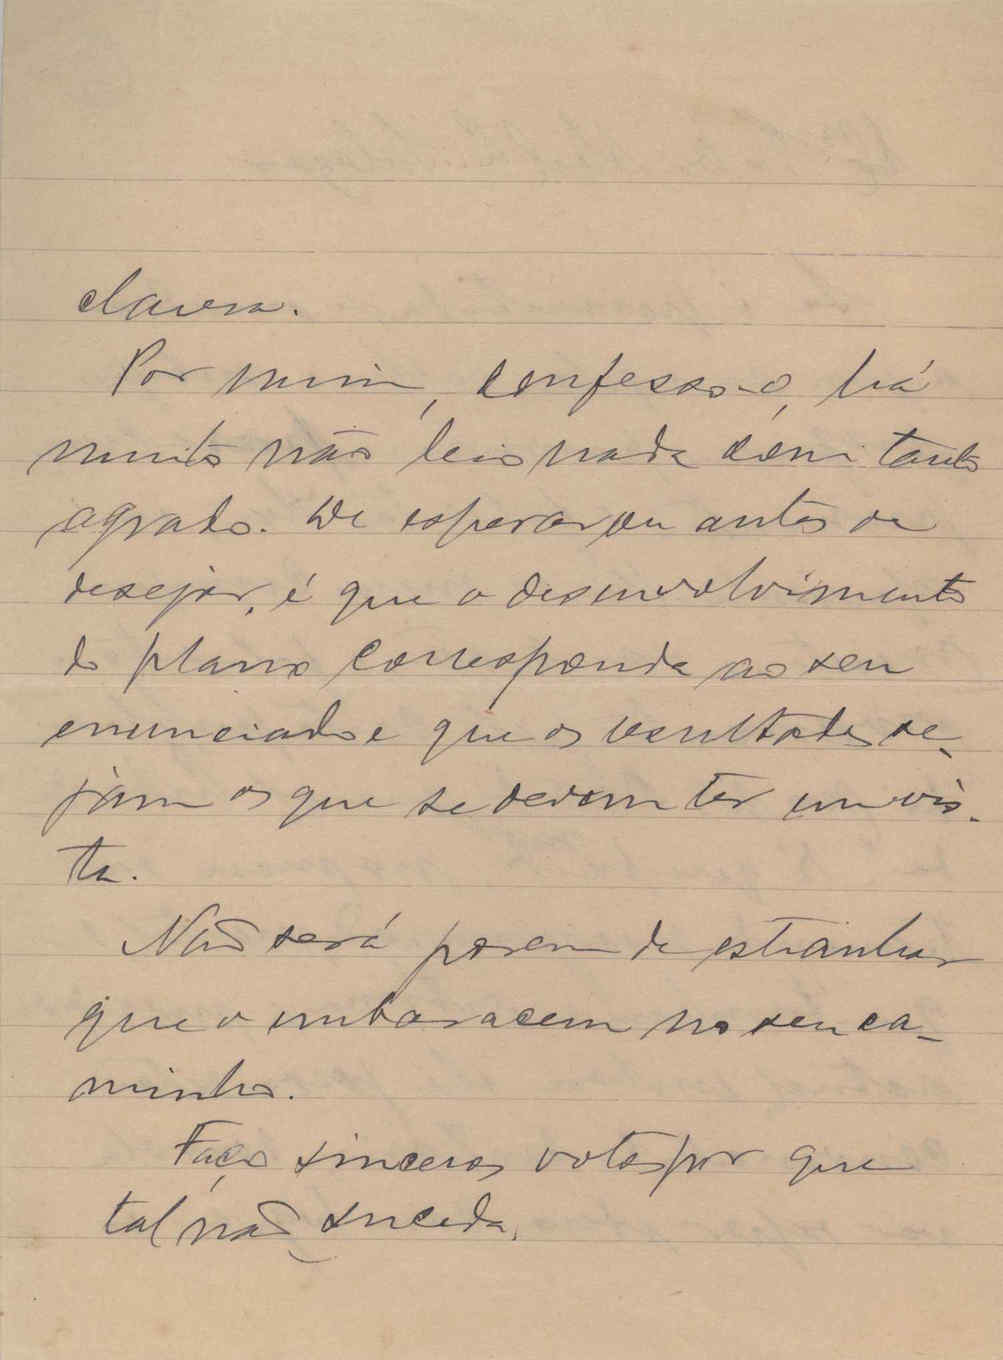 clareza.
Por mim, confesso-o, há
muito não leio nada com tanto
agrado. De esperar, ou antes de
desejar, é que o desenvolvimento
do plano corresponda ao seu
enunciado e que os resultados se-
jam os que se devem ter em vis-
ta.
Não será porem de estranhar
que o embaracem no seu ca-
minho.
Faço sinceros votos por que
tal não suceda.